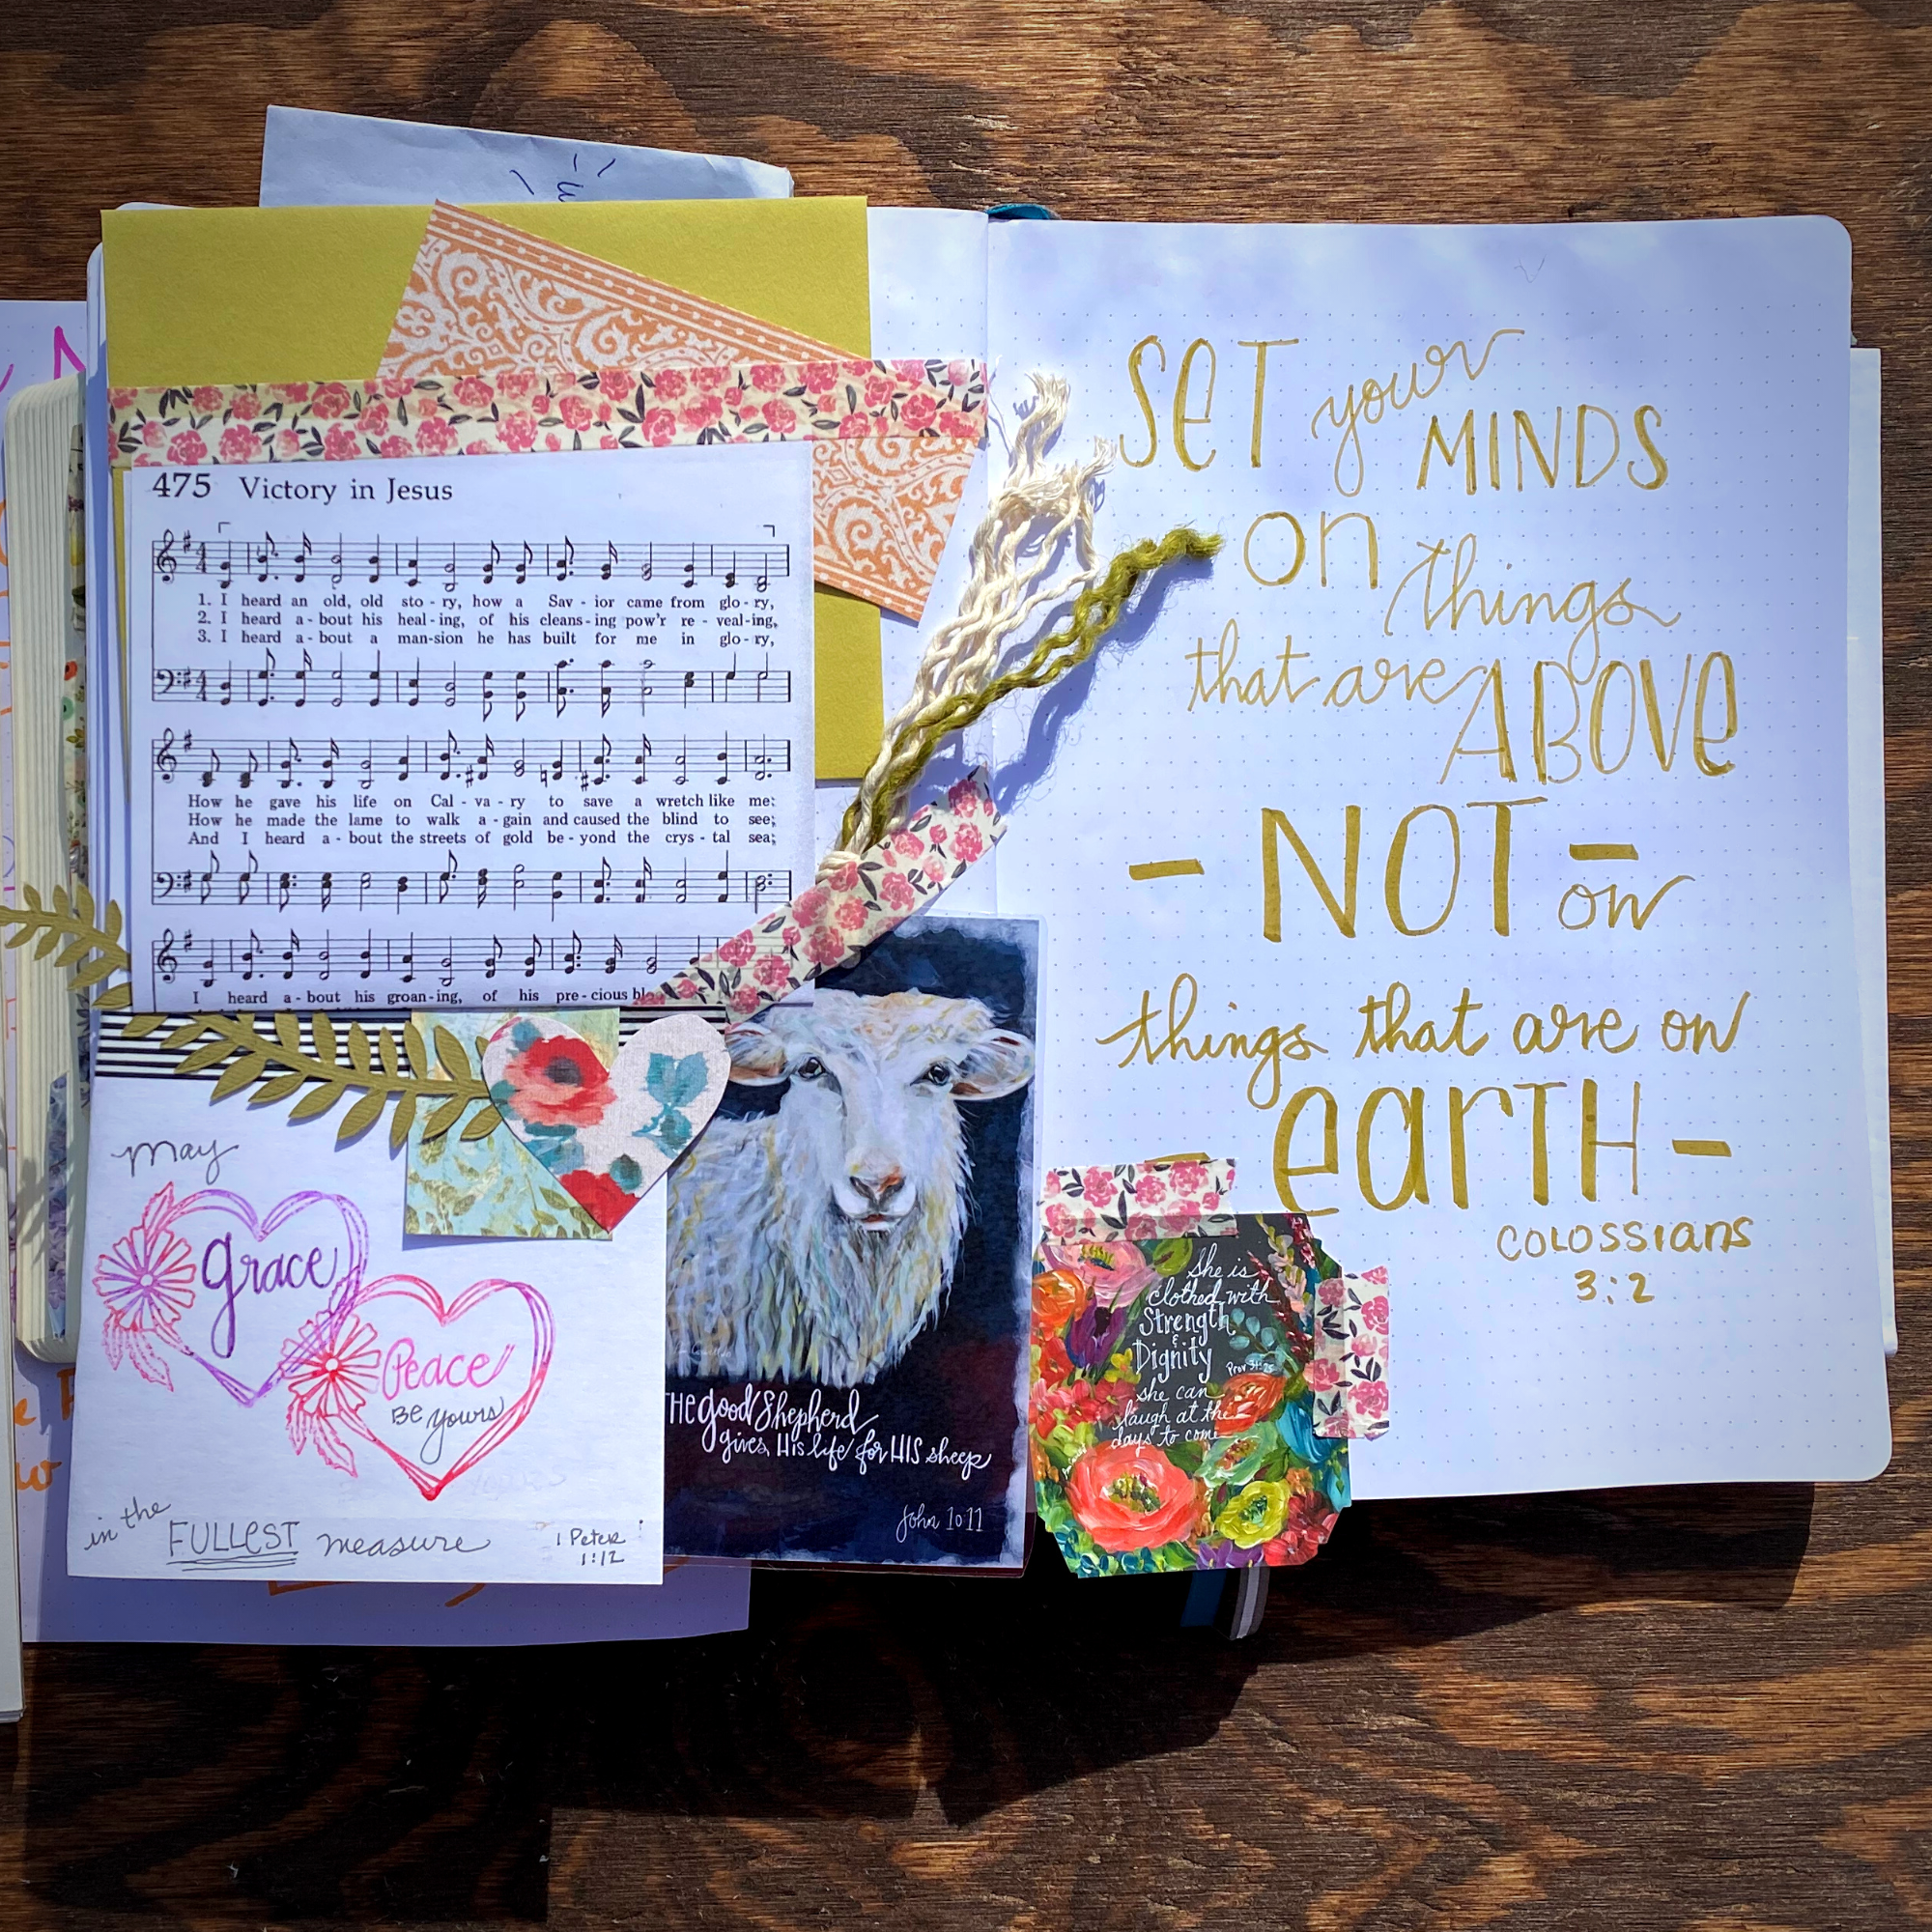 475 Victory in Jesus
1. I heard an old, old sto - ry, how a Sav - ior came from glo - ry,
2. I heard a - bout his heal - ing, of his cleans - ing pow'r re - veal - ing,
3. I heard a - bout a man - sion he has built for me in glo - ry,
How he gave his life on Cal - va - ry to save a wretch like me;
How he made the lame to walk a - gain and caused the blind to see;
And I heard a - bout the streets of gold be - yond the crys - tal sea;
I heard a - bout his groan - ing, of his pre - cious
may
grace
Peace
Be yours
in the FULLEST measure
1 Peter
1:12
THE good Shepherd
gives His life for HIS sheep
John 10:11
SeT your
MINDS
on things
that are ABOVe
- NOT - on
things that are on
- earTH -
COLOSSIans
3:2
She is
clothed with
Strength
&
Dignity
Prov 31:25
she can
laugh at the
days to come